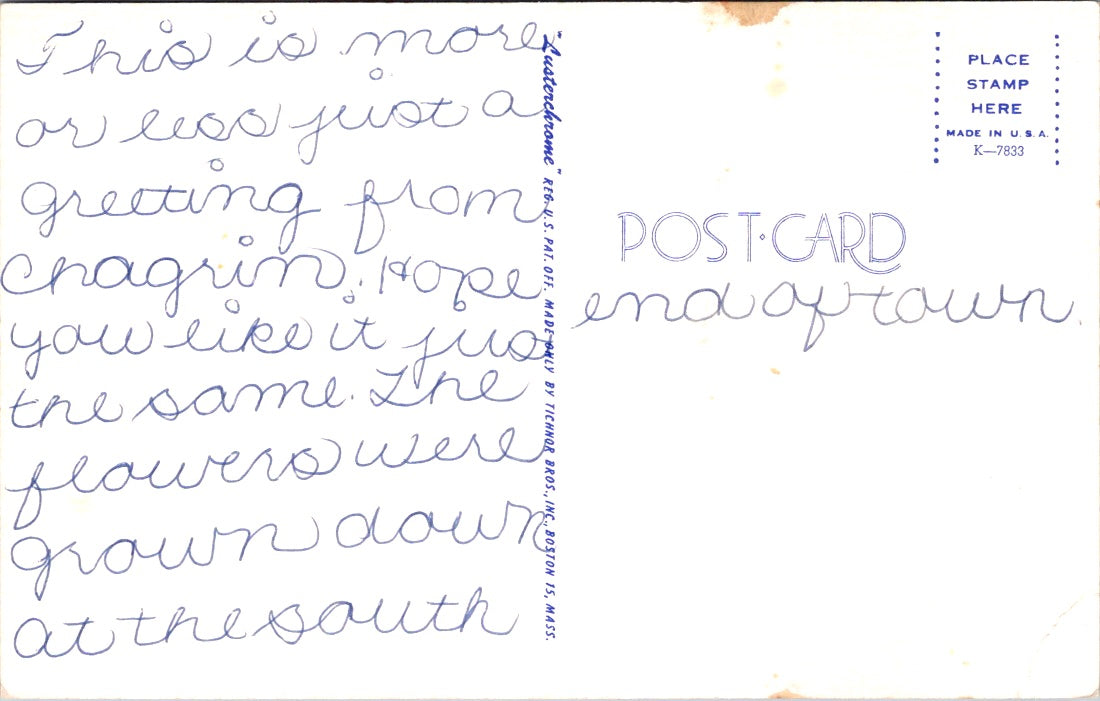 This is more
or less just a
greeting from
Chagrin. Hope
you like it jus
the same. The
flowers were
grown down
at the south
end of town.
"Lusterchrome" REG. U.S. PAT. OFF. MADE ONLY BY TICHNOR BROS., INC., BOSTON 15, MASS.
PLACE
STAMP
HERE
MADE IN U.S.A.
K—7833
POST·CARD